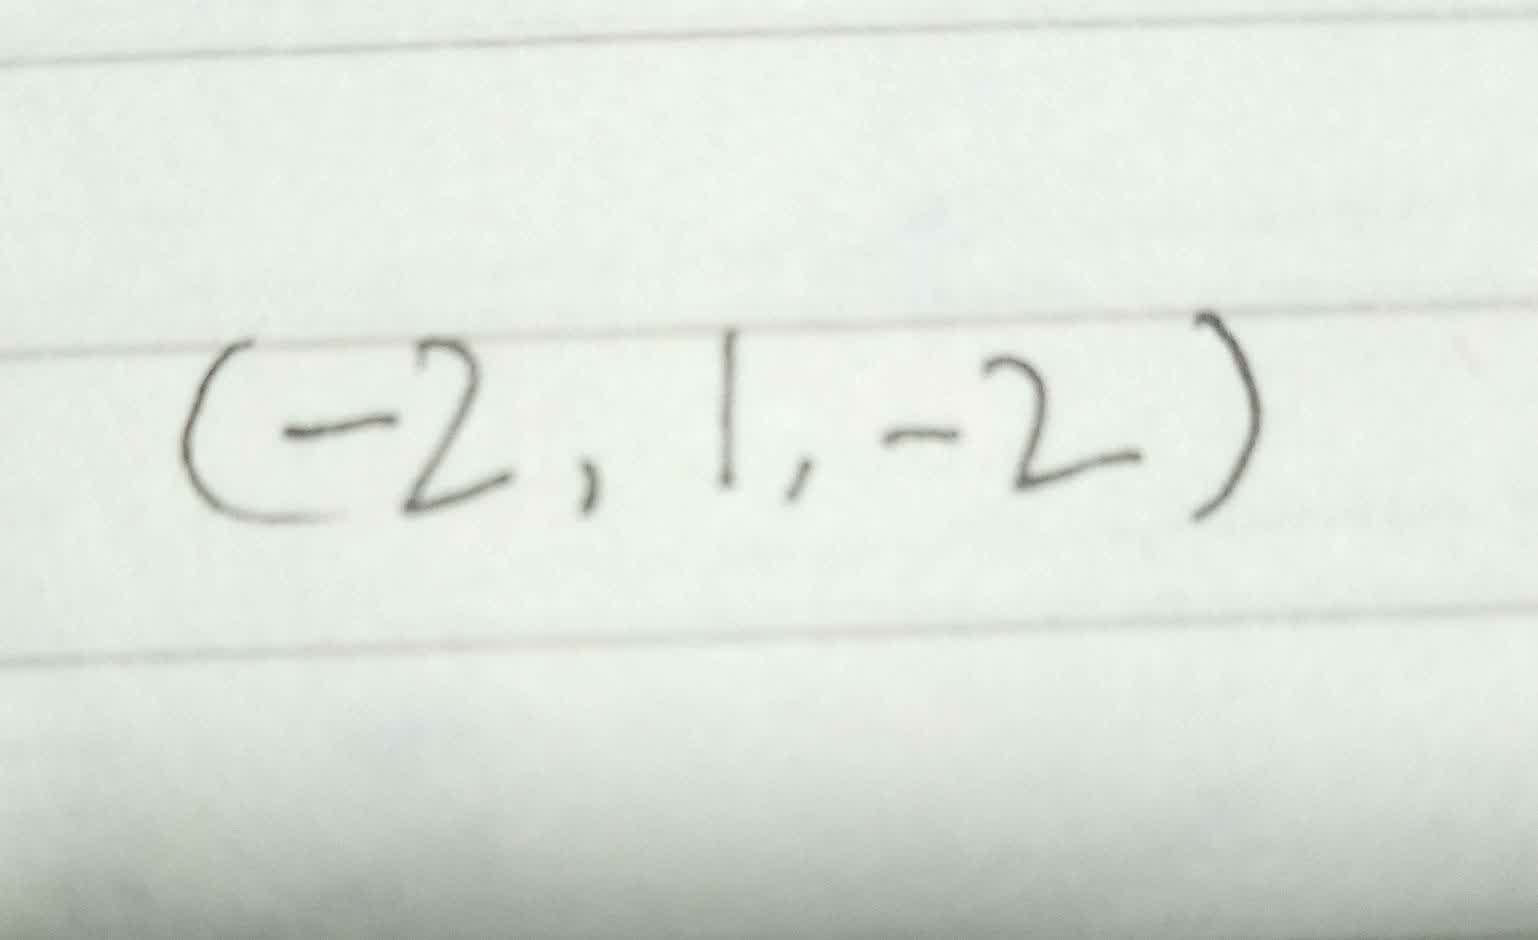 (-2, 1, -2)